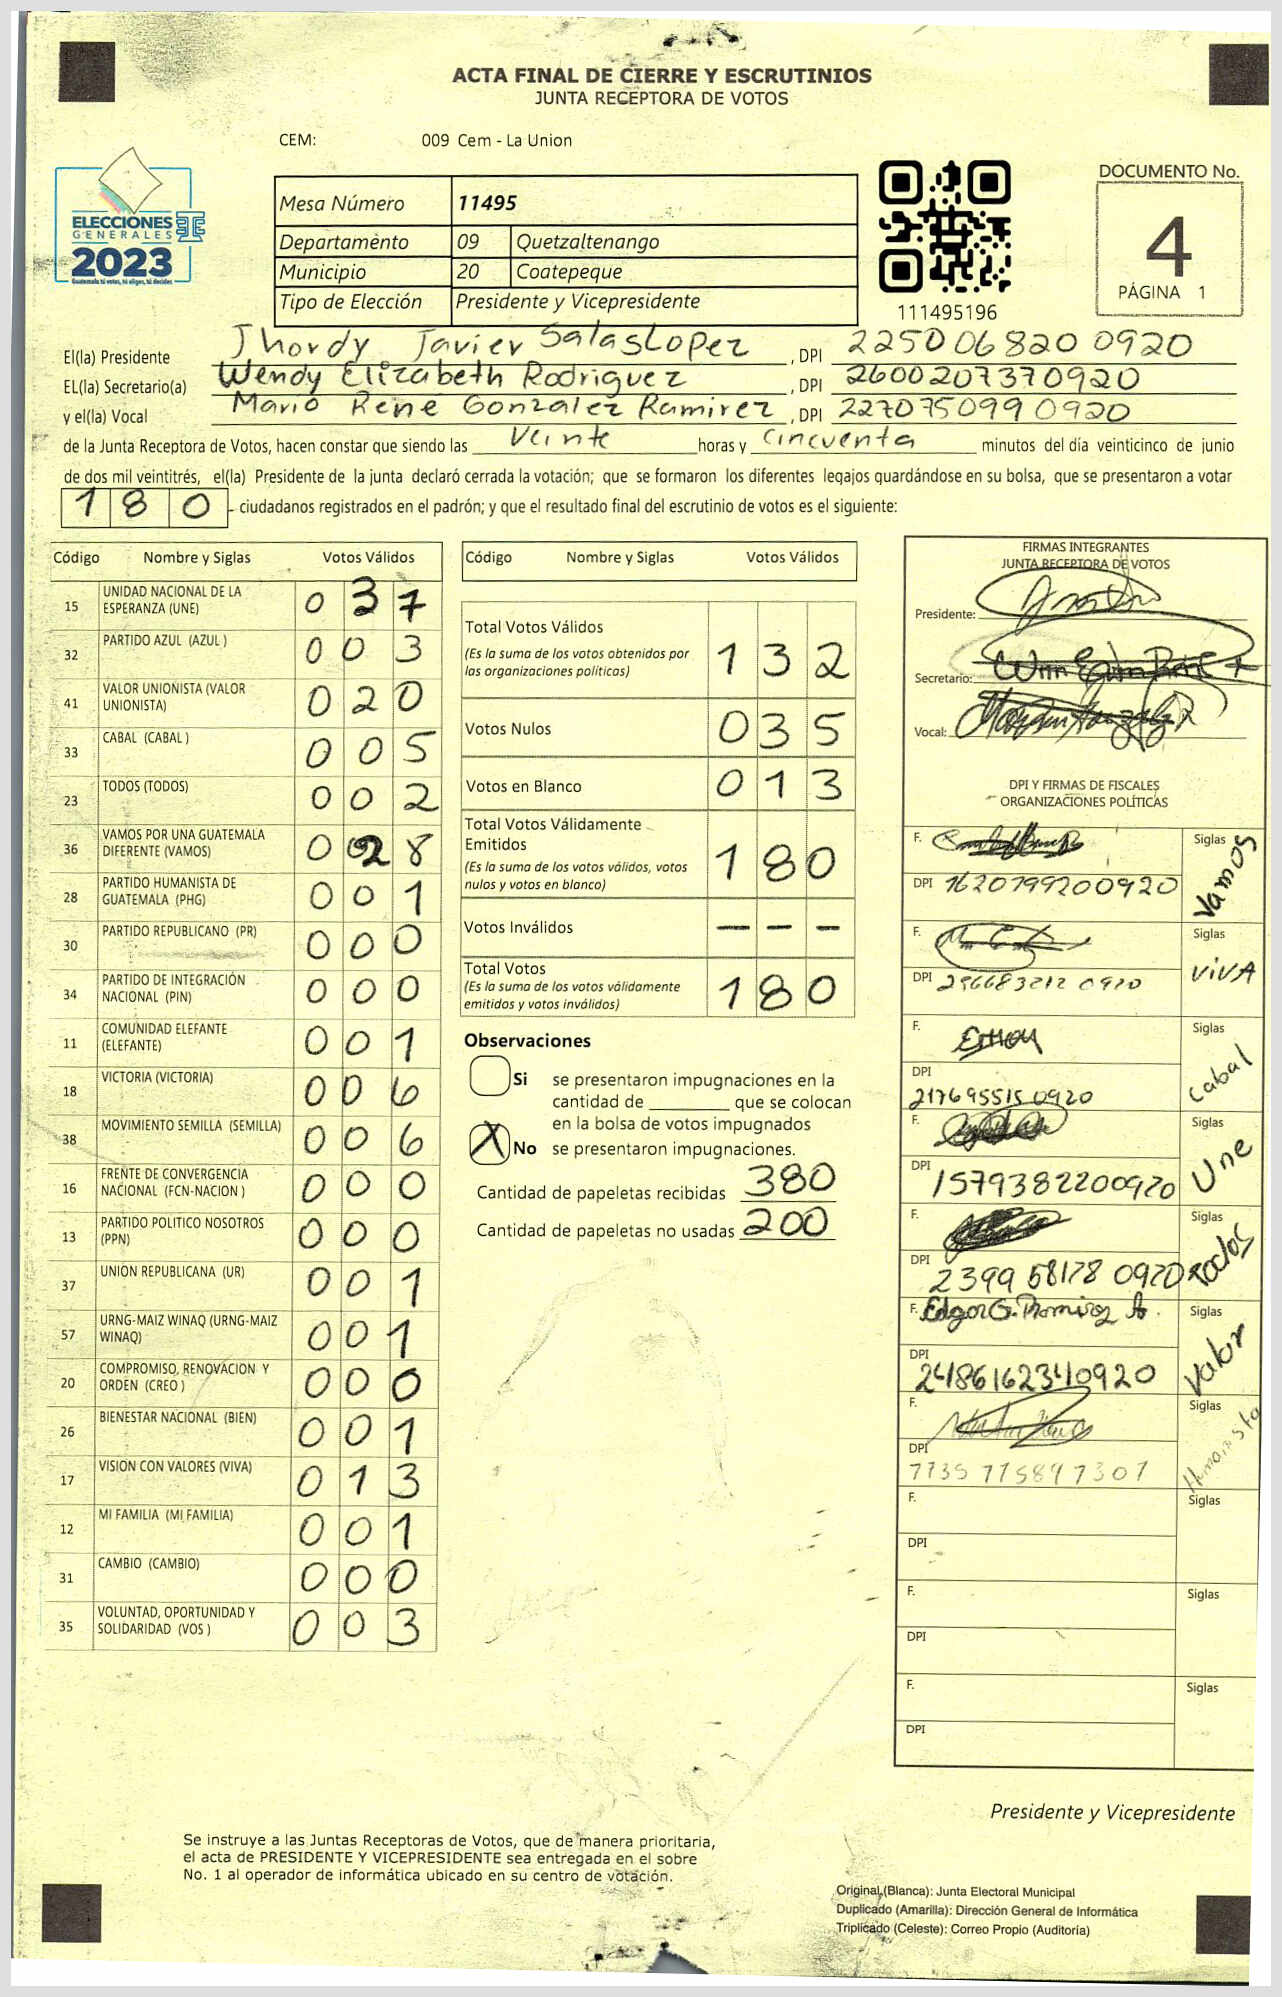 ACTA FINAL DE CIERRE Y ESCRUTINIOS
JUNTA RECEPTORA DE VOTOS
CEM: 009 Cem - La Union
ELECCIONES
GENERALES
2023
Guatemala tú votas, tú eliges, tú decides
Mesa Número 11495
Departamento 09 Quetzaltenango
Municipio 20 Coatepeque
Tipo de Elección Presidente y Vicepresidente
111495196
DOCUMENTO No.
4
PÁGINA 1
El(la) Presidente Jhordy Javier Salas Lopez, DPI 225006820 0920
EL(la) Secretario(a) Wendy Elizabeth Rodriguez, DPI 2600207370920
y el(la) Vocal Mario René Gonzalez Ramirez, DPI 227075099 0920
de la Junta Receptora de Votos, hacen constar que siendo las Veinte horas y cincuenta minutos del día veinticinco de junio
de dos mil veintitrés, el(la) Presidente de la junta declaró cerrada la votación; que se formaron los diferentes legajos guardándose en su bolsa, que se presentaron a votar
180 ciudadanos registrados en el padrón; y que el resultado final del escrutinio de votos es el siguiente:
Código Nombre y Siglas Votos Válidos
15 UNIDAD NACIONAL DE LA ESPERANZA (UNE) 0 3 7
32 PARTIDO AZUL (AZUL ) 0 0 3
41 VALOR UNIONISTA (VALOR UNIONISTA) 0 2 0
33 CABAL (CABAL ) 0 0 5
23 TODOS (TODOS) 0 0 2
36 VAMOS POR UNA GUATEMALA DIFERENTE (VAMOS) 0 2 8
28 PARTIDO HUMANISTA DE GUATEMALA (PHG) 0 0 1
30 PARTIDO REPUBLICANO (PR) 0 0 0
34 PARTIDO DE INTEGRACIÓN NACIONAL (PIN) 0 0 0
11 COMUNIDAD ELEFANTE (ELEFANTE) 0 0 1
18 VICTORIA (VICTORIA) 0 0 6
38 MOVIMIENTO SEMILLA (SEMILLA) 0 0 6
16 FRENTE DE CONVERGENCIA NACIONAL (FCN-NACION ) 0 0 0
13 PARTIDO POLITICO NOSOTROS (PPN) 0 0 0
37 UNION REPUBLICANA (UR) 0 0 1
57 URNG-MAIZ WINAQ (URNG-MAIZ WINAQ) 0 0 1
20 COMPROMISO, RENOVACION Y ORDEN (CREO ) 0 0 0
26 BIENESTAR NACIONAL (BIEN) 0 0 1
17 VISION CON VALORES (VIVA) 0 1 3
12 MI FAMILIA (MI FAMILIA) 0 0 1
31 CAMBIO (CAMBIO) 0 0 0
35 VOLUNTAD, OPORTUNIDAD Y SOLIDARIDAD (VOS ) 0 0 3
Código Nombre y Siglas Votos Válidos
Total Votos Válidos 1 3 2
(Es la suma de los votos obtenidos por las organizaciones políticas)
Votos Nulos 0 3 5
Votos en Blanco 0 1 3
Total Votos Válidamente Emitidos 1 8 0
(Es la suma de los votos válidos, votos nulos y votos en blanco)
Votos Inválidos - - -
Total Votos 1 8 0
(Es la suma de los votos válidamente emitidos y votos inválidos)
Observaciones
Si se presentaron impugnaciones en la
cantidad de ________ que se colocan
en la bolsa de votos impugnados
X No se presentaron impugnaciones.
Cantidad de papeletas recibidas 380
Cantidad de papeletas no usadas 200
FIRMAS INTEGRANTES
JUNTA RECEPTORA DE VOTOS
Presidente:
Secretario:
Vocal:
DPI Y FIRMAS DE FISCALES
ORGANIZACIONES POLÍTICAS
F. Siglas Vamos
DPI 1620799200920
F. Siglas VIVA
DPI 296683212 0920
F. Siglas Cabal
DPI 217695515 0920
F. Siglas Une
DPI 1579382200920
F. Siglas Todos
DPI 2399 58178 0920
F. Edgar G. Ramirez A. Siglas Valor
DPI 2486162340920
F. Siglas Humanista
DPI
F. Siglas
DPI
F. Siglas
DPI
F. Siglas
DPI
Presidente y Vicepresidente
Se instruye a las Juntas Receptoras de Votos, que de manera prioritaria,
el acta de PRESIDENTE Y VICEPRESIDENTE sea entregada en el sobre
No. 1 al operador de informática ubicado en su centro de votación.
Original (Blanca): Junta Electoral Municipal
Duplicado (Amarilla): Dirección General de Informática
Triplicado (Celeste): Correo Propio (Auditoría)